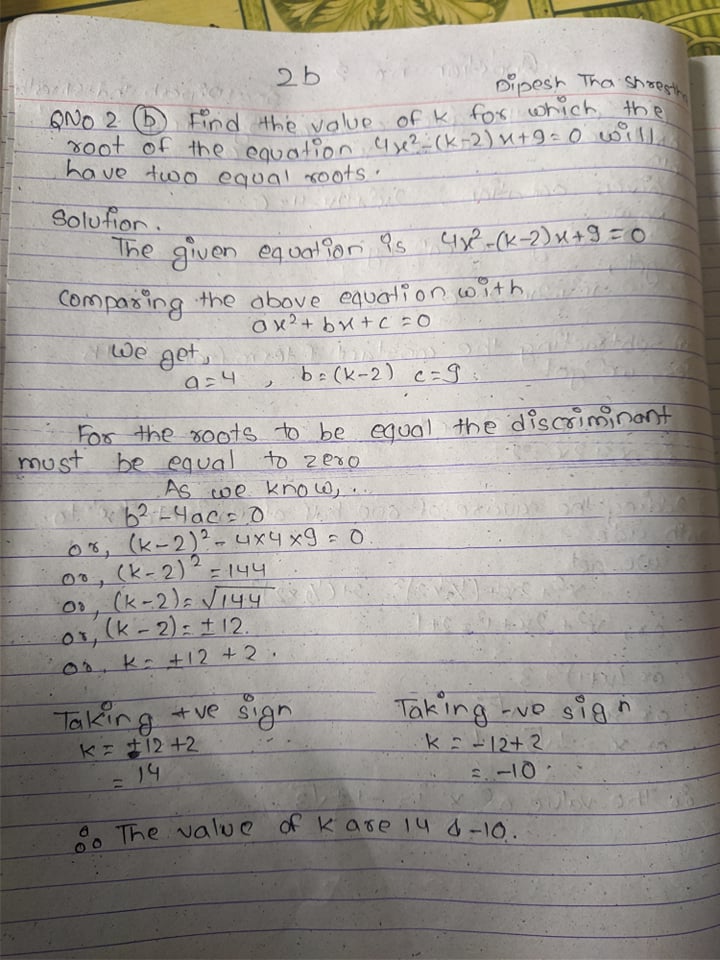 2b
Dipesh Tha Shrestha
QNO 2 (b) Find the value of k for which the
root of the equation 4x²-(k-2)x+9=0 will
have two equal roots.
Solution.
The given equation is 4x²-(k-2)x+9=0
Comparing the above equation with
ax²+bx+c=0
We get,
a=4 , b=(k-2) c=9
For the roots to be equal the discriminant
must be equal to zero
As we know,..
b²-4ac=0
or, (k-2)²-4×4×9=0.
or, (k-2)²=144
or, (k-2)=√144
or, (k-2)=±12.
or, k=±12+2.
Taking +ve sign
Taking -ve sign
k=+12+2
k=-12+2
=14
=-10.
∴ The value of k are 14 & -10.